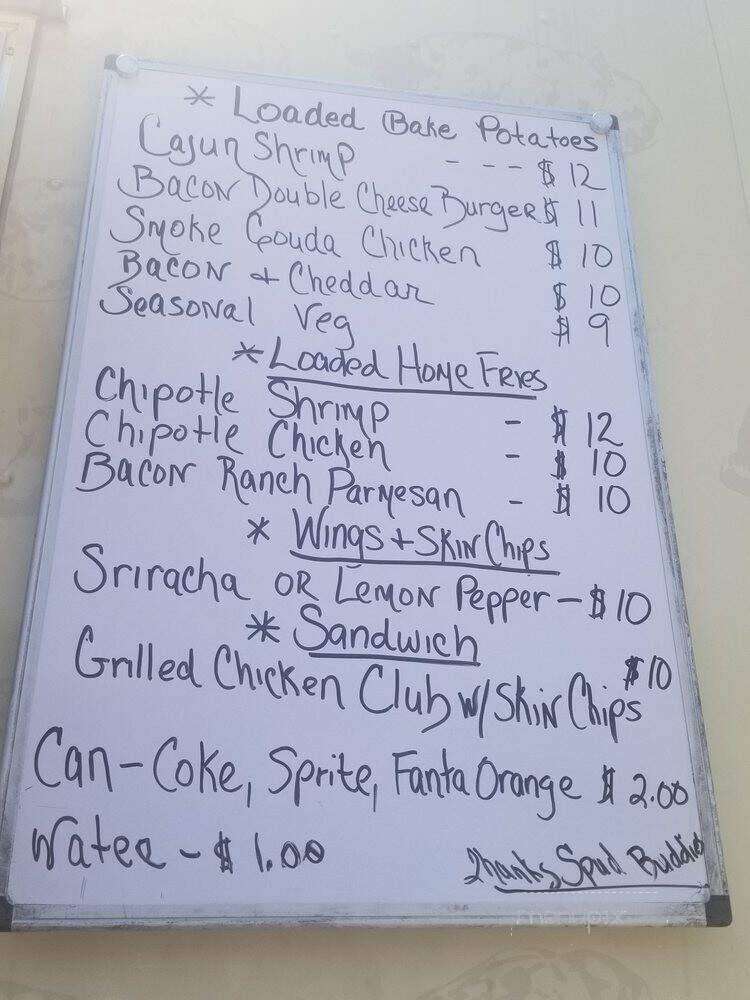 * Loaded Bake Potatoes
Cajun Shrimp - - - $ 12
Bacon Double Cheese Burger $ 11
Smoke Gouda Chicken $ 10
Bacon + Cheddar $ 10
Seasonal Veg $ 9
* Loaded Home Fries
Chipotle Shrimp - $ 12
Chipotle Chicken - $ 10
Bacon Ranch Parmesan - $ 10
* Wings + Skin Chips
Sriracha OR Lemon Pepper - $10
* Sandwich
Grilled Chicken Club w/ Skin Chips $10
Can - Coke, Sprite, Fanta Orange $ 2.00
Water - $ 1.00
Thanks, Spud Buddies